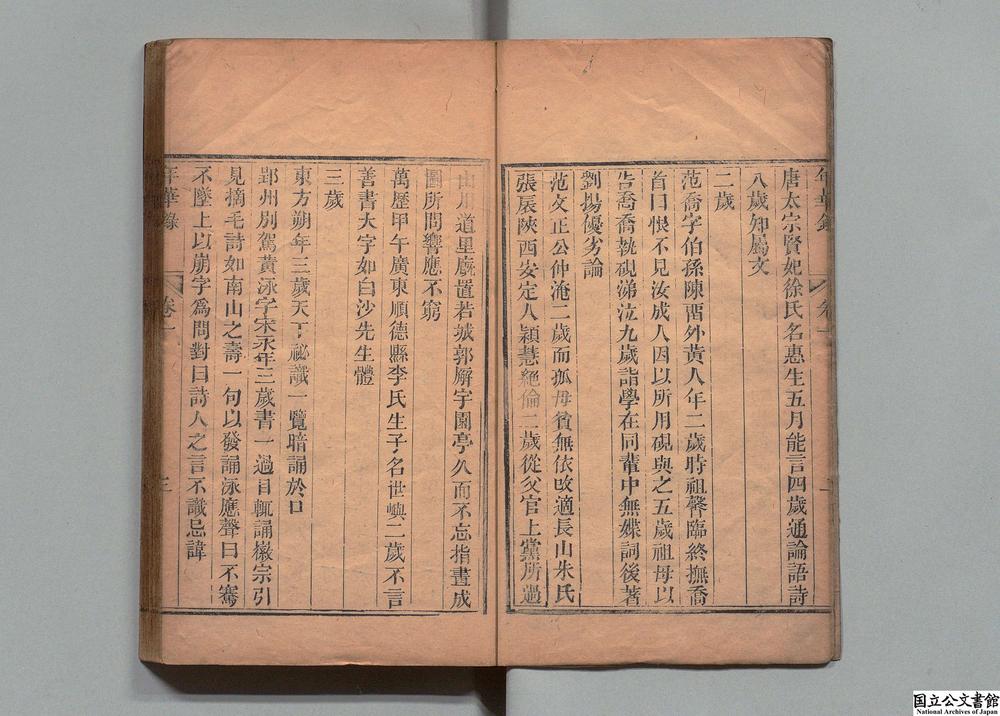 年華錄 卷一
唐太宗賢妃徐氏名惠生五月能言四歲通論語詩
八歲知屬文
二歲
范喬字伯孫陳留外黃人年二歲時祖馨臨終撫喬
首曰恨不見汝成人因以所用硯與之五歲祖母以
告喬喬執硯涕泣九歲詣學在同輩中無媟詞後著
劉揚優劣論
范文正公仲淹二歲而孤母貧無依改適長山朱氏
張扆陝西安定人穎慧絕倫二歲從父官上黨所過
山川道里廨置若城郭廨宇園亭久而不忘指畫成
圖所問響應不窮
萬歷甲午廣東順德縣李氏生子名世嶼二歲不言
善書大字如白沙先生體
三歲
東方朔年三歲天下祕讖一覽暗誦於口
郢州別駕黃泳字宋永年三歲書一過目輒誦徽宗引
見摘毛詩如南山之壽一句以發誦泳應聲曰不騫
不墜上以崩字爲問對曰詩人之言不識忌諱
年華錄 卷一 三
国立公文書館
National Archives of Japan